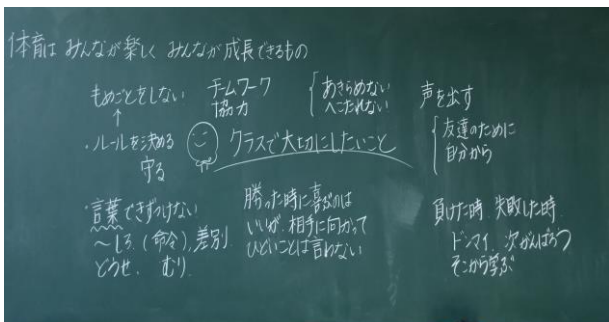 体育は みんなが楽しく みんなが成長できるもの
もめごとをしない
↑
・ルールを決める
守る
チームワーク
協力
あきらめない
へこたれない
声を出す
友達のために
自分から
クラスで大切にしたいこと
・言葉できずつけない
～しろ.(命令),差別
どうせ、むり
勝った時に喜ぶのは
いいが、相手に向かって
ひどいことは言わない
負けた時、失敗した時
ドンマイ、次がんばろう
そこから学ぶ